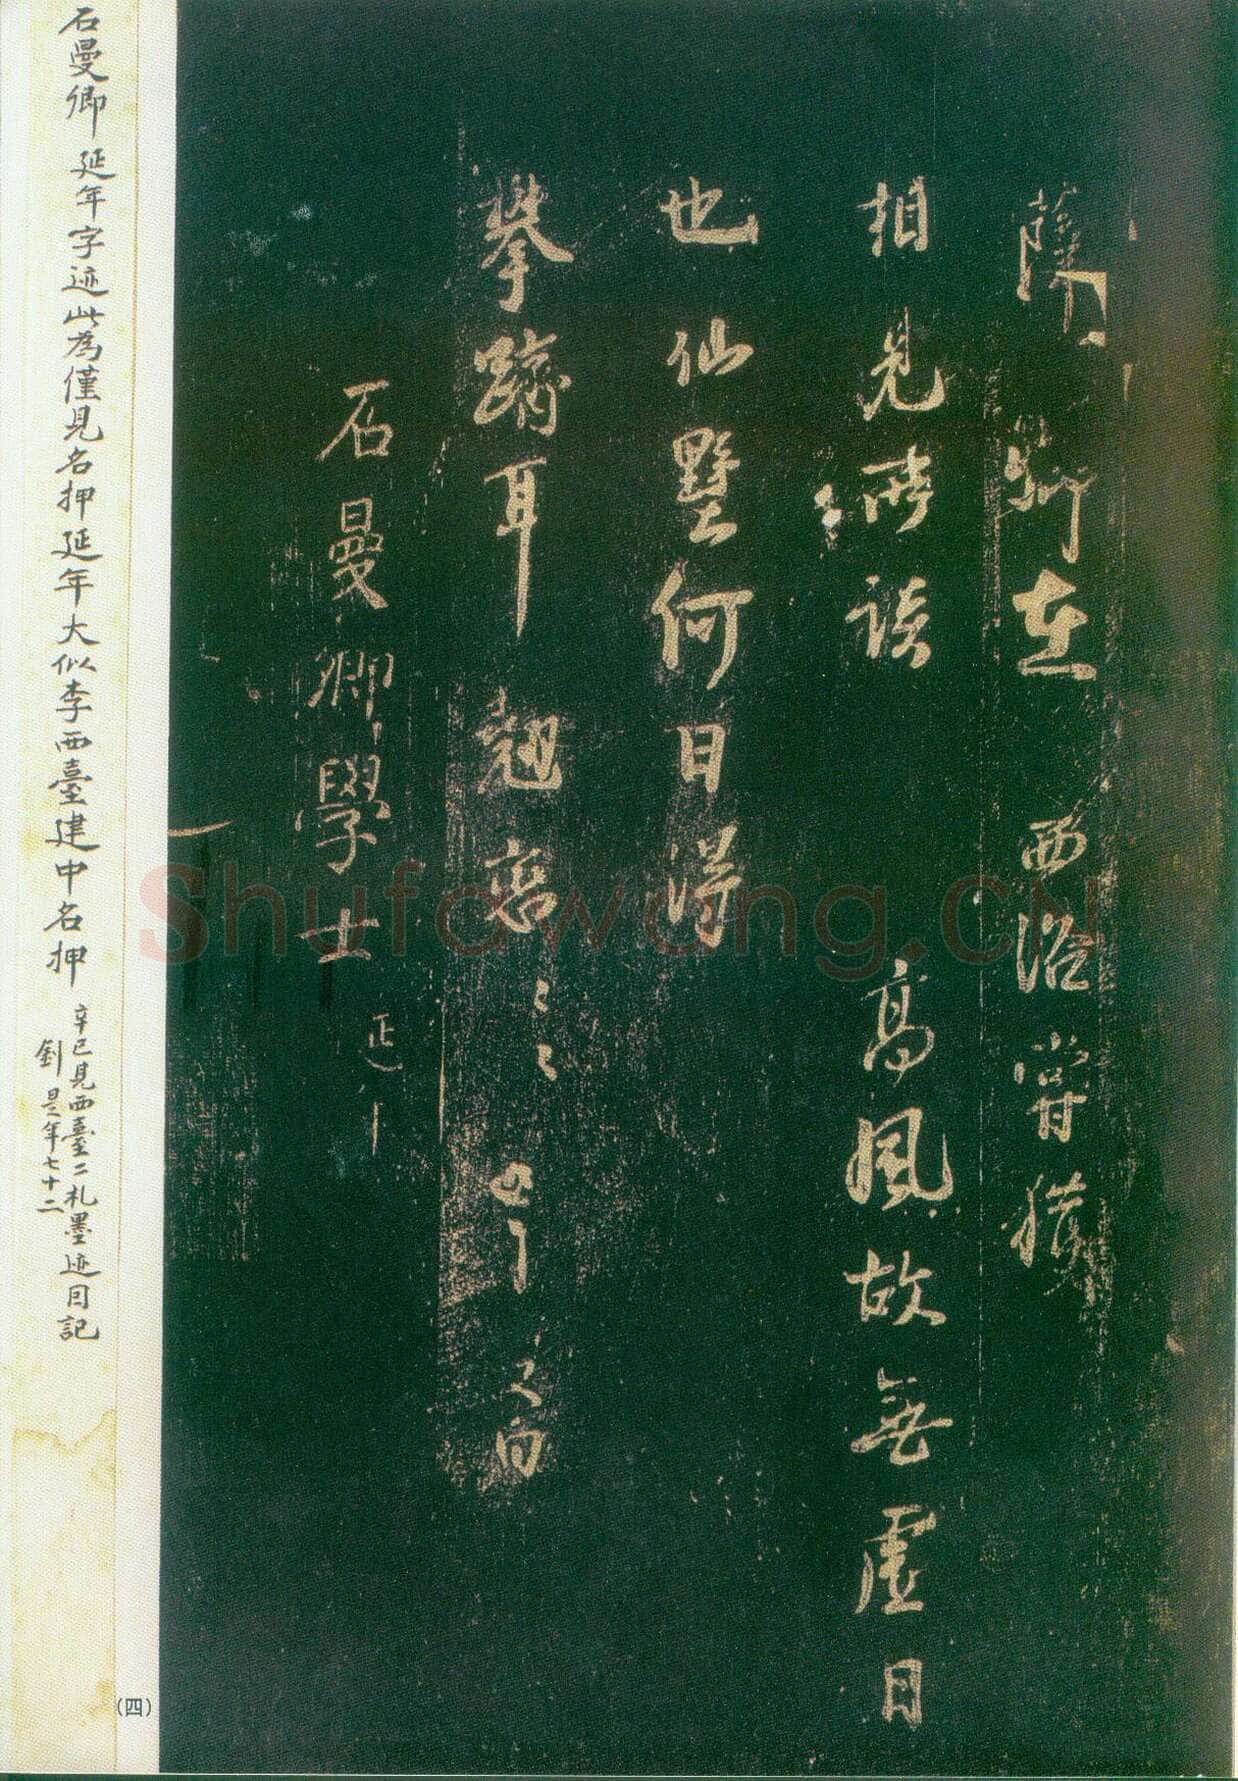 薛卿在 西洛甞獲
相見所談 高風故無虛日
也仙墅何日得
攀躋耳 翹密〻〻
石曼卿學士 延年
石曼卿延年字迹此為僅見名押延年大似李西臺建中名押
辛巳見西臺二札墨迹因記
釗是年七十二
(四)
Shufawang.CN